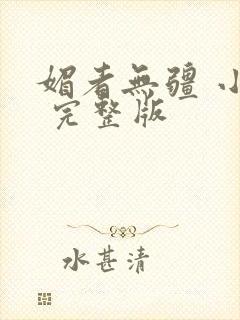 媚者無疆 小
完整版
水甚清